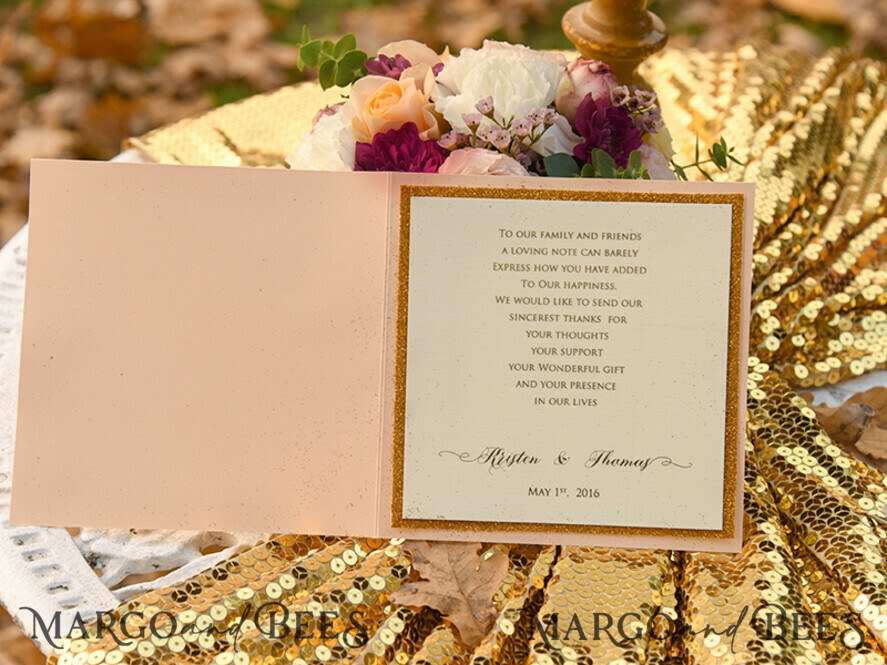 To our family and friends
a loving note can barely
Express how you have added
To Our happiness.
We would like to send our
sincerest thanks for
your thoughts
your support
your Wonderful gift
and your presence
in our lives
Kristen & Thomas
May 1st, 2016
MARGO and BEES MARGO and BEES